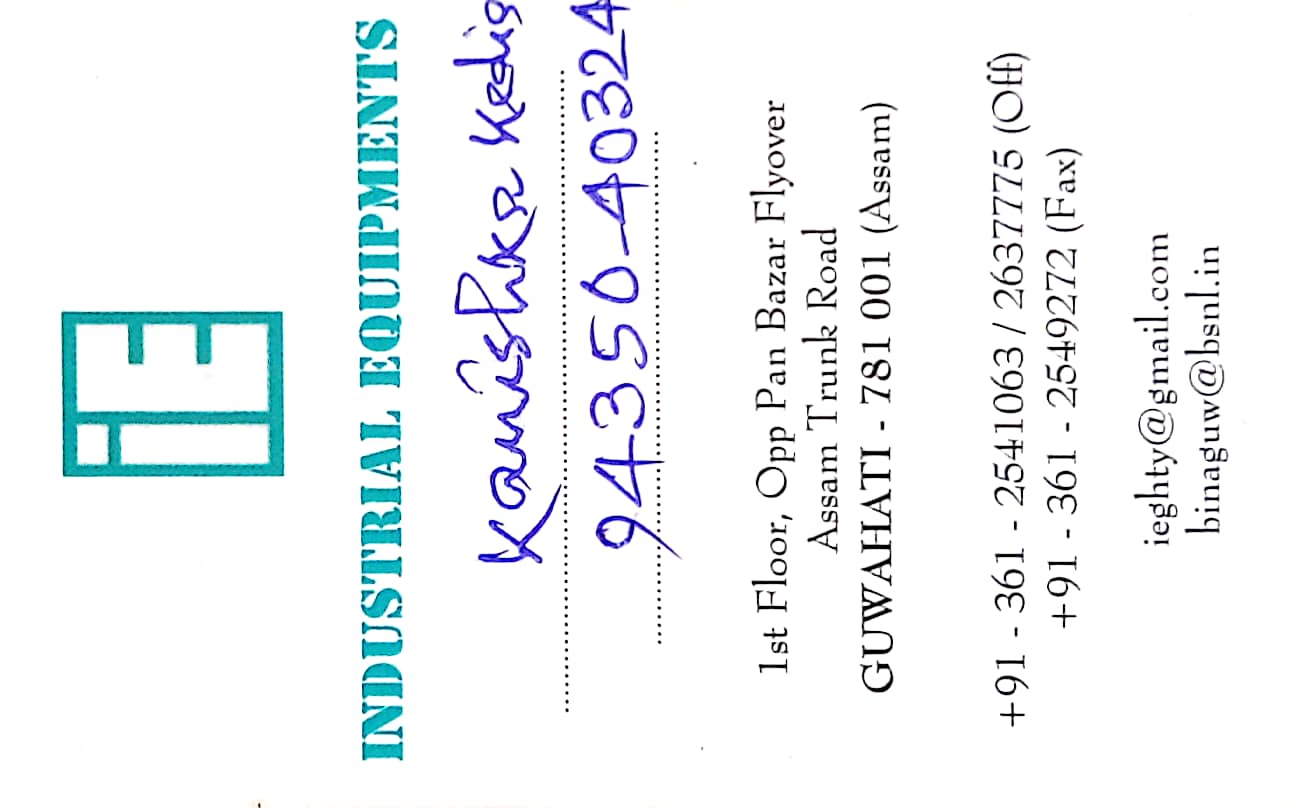 iE
INDUSTRIAL EQUIPMENTS
Kanishka
94350-40324
1st Floor, Opp Pan Bazar Flyover
Assam Trunk Road
GUWAHATI - 781 001 (Assam)
+91 - 361 - 2541063 / 2637775 (Off)
+91 - 361 - 2549272 (Fax)
ieghty@gmail.com
binaguw@bsnl.in